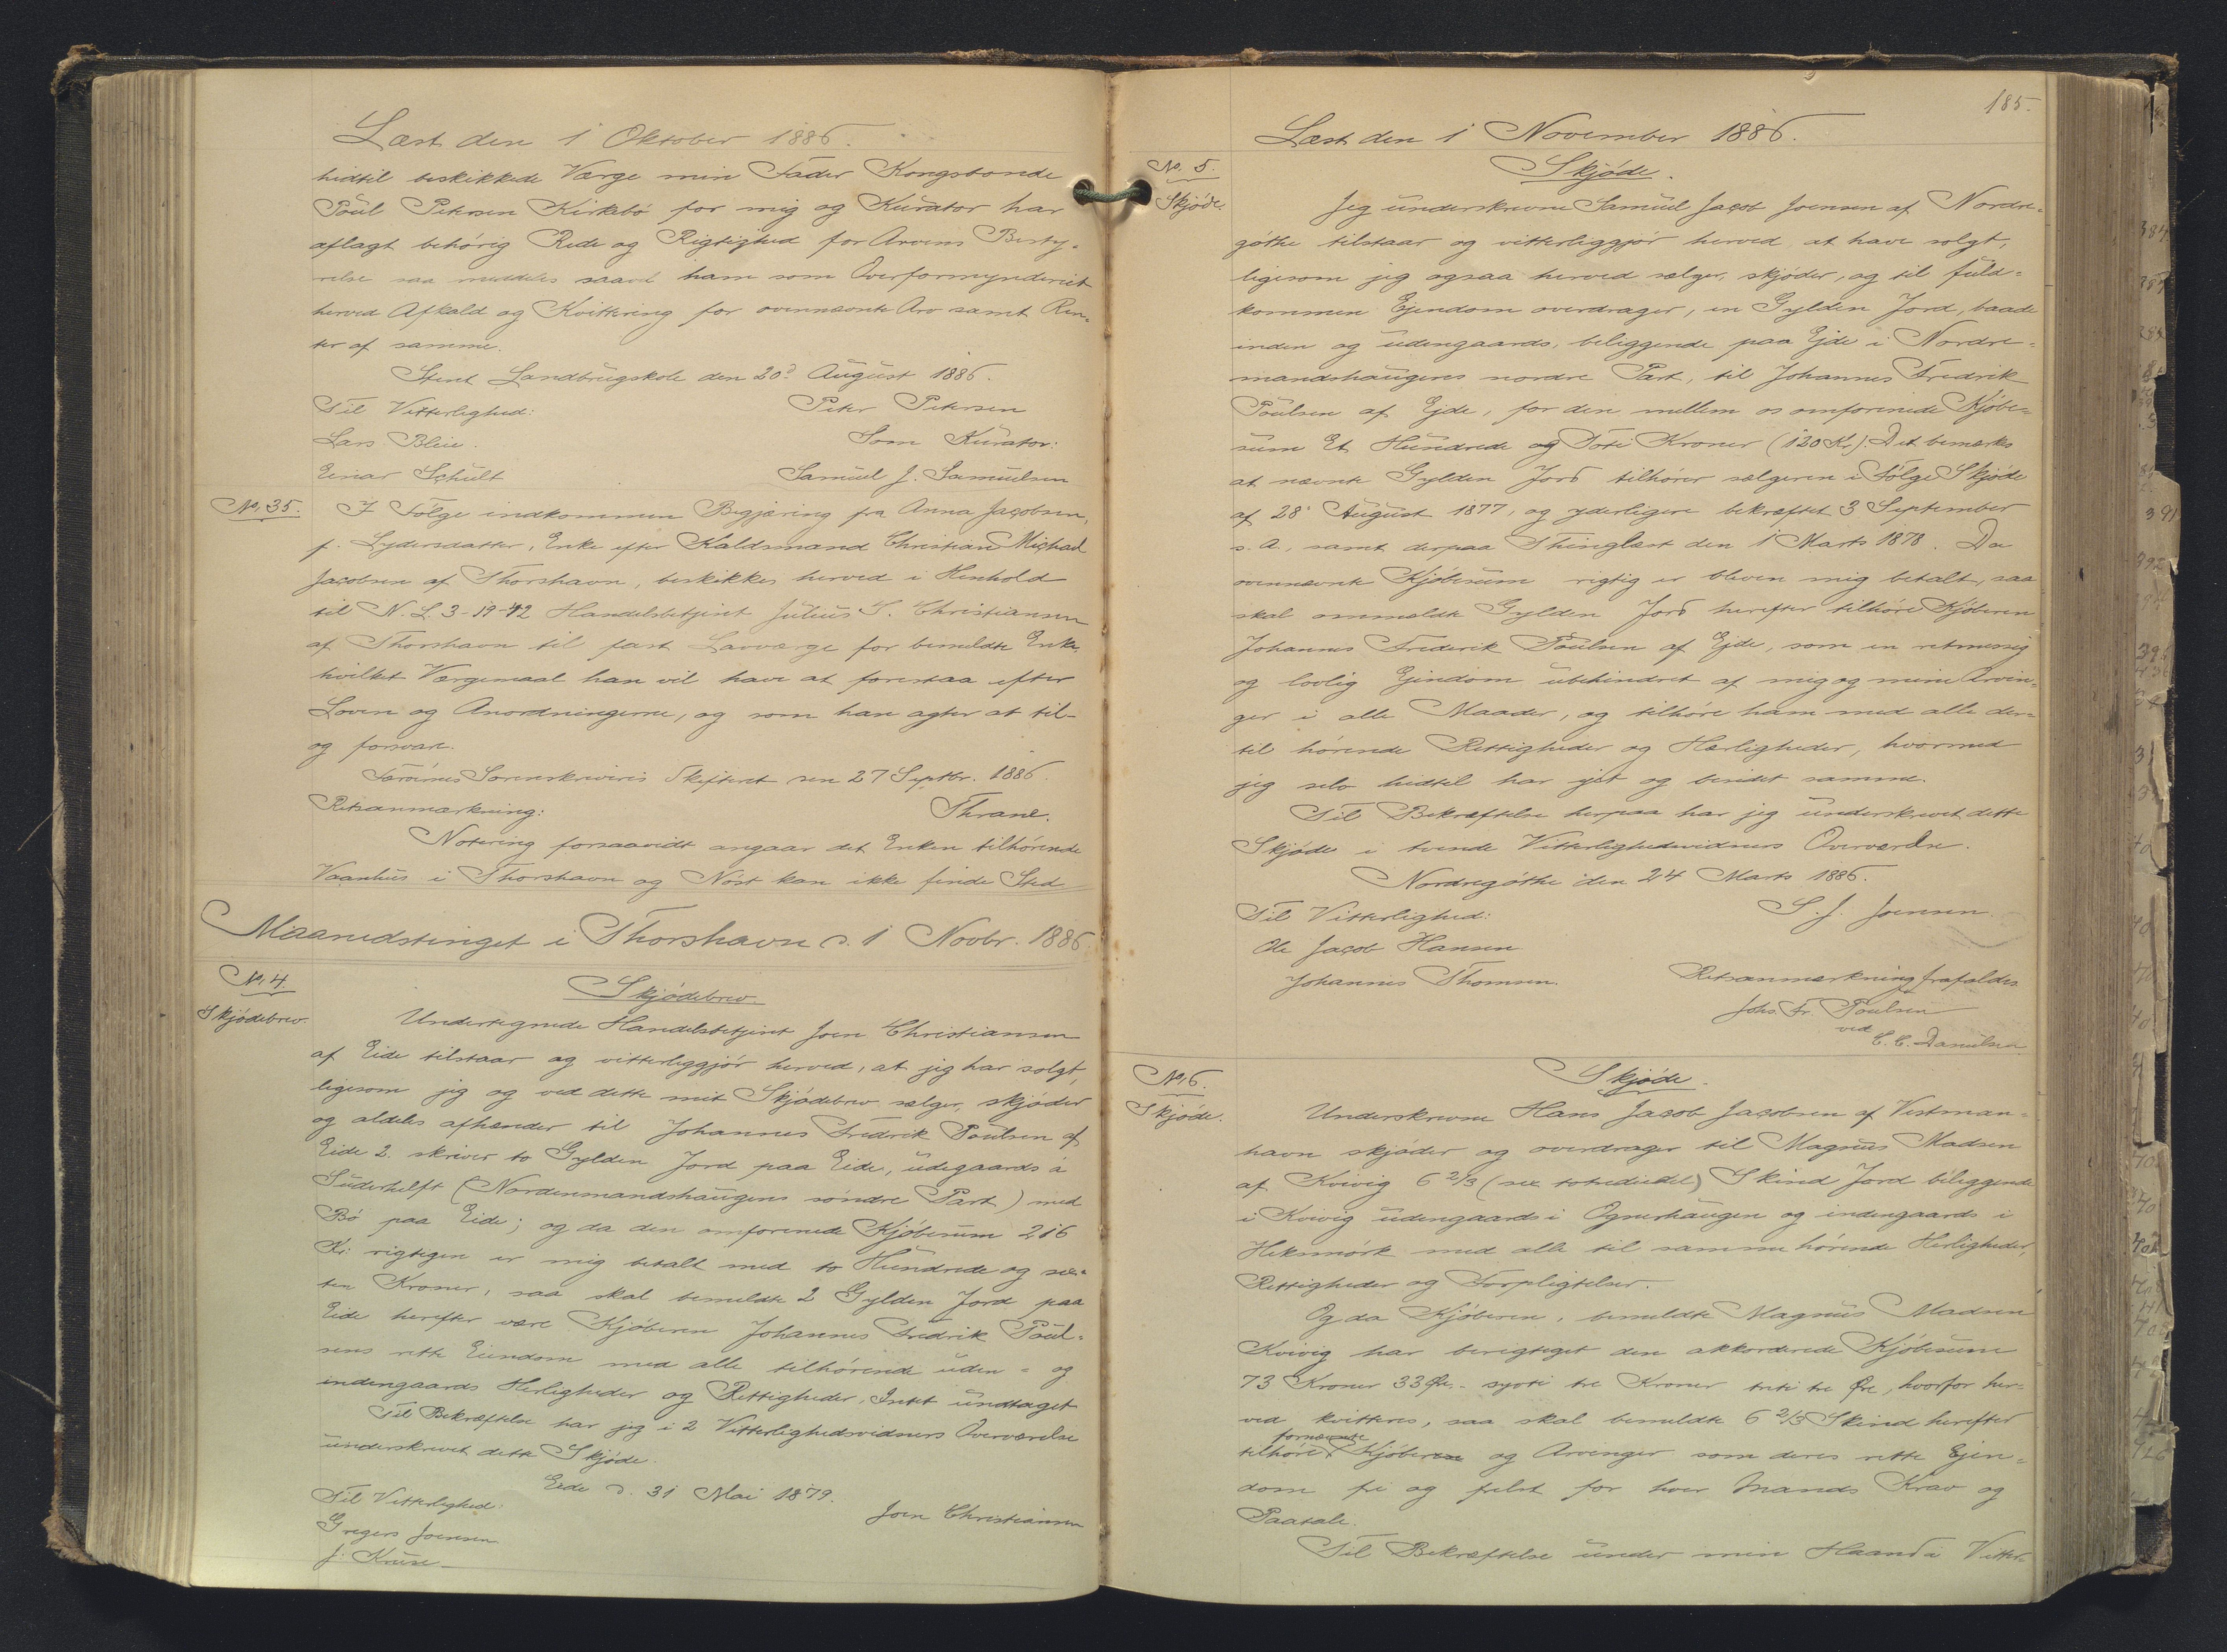 Læst den 1 Oktober 1886.
hidtil beskikkede Værge min Fader Kongsbonde
Poul Petersen Kirkebø for mig og Kurator har
aflagt behørig Rede og Rigtighed for Arvens Besty-
relse saa meddeles saavel ham som Overformynderiet
herved Afkald og Kvittering for ovennævnte Arv samt Ren-
ter af samme.
Stent Landbrugskole den 20d August 1886.
Til Vitterlighed: Peter Petersen
Lars Bleie. Som Kurator:
Einar Schult Samuel J. Samuelsen
No. 35. I Følge indkommen Begjæring fra Anna Jacobsen,
f. Lydersdatter, Enke efter Kaldsmand Christian Michael
Jacobsen af Thorshavn, beskikkes herved i Henhold
til N. L. 3-19-42 Handelsbetjent Julius S. Christiansen
af Thorshavn til fast Lavværge for bemeldte Enke,
hvilket Værgemaal han vil have at forestaa efter
Loven og Anordningerne, og som han agter at til-
og forsvare.
Færøernes Sorenskriveris Skifteret den 27 Septbr. 1886.
Retsanmærkning: Thrane.
Notering forsaavidt angaar det Enken tilhørende
Vaanhus i Thorshavn og Nøst kan ikke finde Sted
Maanedstinget i Thorshavn d. 1 Novbr. 1886.
No. 4.
Skjødebrev.
Skjødebrev.
Undertegnede Handelsbetjent Joen Christiansen
af Eide tilstaar og vitterliggjør herved, at jeg har solgt,
ligesom jeg og ved dette mit Skjødebrev sælger, skjøder
og aldeles afhænder til Johannes Fredrik Poulsen af
Eide 2. skriver to Gylden Jord paa Eide, udegaards á
Suderhelft (Nordenmandshaugens søndre Part) med
Bø paa Eide; og da den omforenede Kjøbesum 216
Kr: rigtigen er mig betalt med to Hundrede og sex-
ten Kroner, saa skal bemeldte 2 Gylden Jord paa
Eide herefter være Kjøberen Johannes Fredrik Poul-
sens rette Eiendom med alle tilhørende uden- og
indengaards Herligheder og Rettigheder, Intet undtaget
Til Bekræftelse har jeg i 2 Vitterlighedsvidners Overværelse
underskrevet dette Skjøde.
Eide d. 31 Mai 1879.
Til Vitterlighed: Joen Christiansen
Gregers Joensen
J. Kruse
185.
Læst den 1 November 1886.
No. 5.
Skjøde.
Skjøde.
Jeg underskrevne Samuel Jacob Joensen af Nordre-
gøthe tilstaar og vitterliggjør herved, at have solgt,
ligesom jeg ogsaa herved sælger, skjøder, og til fuld-
kommen Ejendom overdrager, en Gylden Jord, baade
inden og udengaards, beliggende paa Ejde i Nordre-
mandshaugens nordre Part, til Johannes Fredrik
Poulsen af Ejde, for den mellem os omforenede Kjøbe-
sum Et Hundrede og Tyve Kroner (120 Kr). Det bemærkes
at nævnte Gylden Jord tilhører sælgeren i Følge Skjøde
af 28 August 1877, og yderligere bekræftet 3 September
s. A., samt derpaa Thinglæst den 1 Marts 1878. Da
ovennævnte Kjøbesum rigtig er bleven mig betalt, saa
skal ommeldte Gylden Jord herefter tilhøre Kjøberen
Johannes Frederik Poulsen af Ejde, som en retmessig
og lovlig Ejendom ubehindret af mig og mine Arvin-
ger i alle Maader, og tilhøre ham med alle der-
til hørende Rettigheder og Herligheder, hvormed
jeg selv hidtil har ejet og besidet samme.
Til Bekræftelse herpaa har jeg underskrevet dette
Skjøde i tvende Vitterlighedsvidners Overværelse.
Nordregøthe den 24 Marts 1886.
Til Vitterlighed: S. J. Joensen.
Ole Jacob Hansen
Johannes Thomsen. Retsanmærkning frafaldes
Johs. Fr. Poulsen
ved
C. C. Danielsen
No. 6.
Skjøde.
Skjøde.
Underskrevne Hans Jacob Jacobsen af Vestman-
havn skjøder og overdrager til Magnus Madsen
af Kvivig 6 2/3 (sex totrediedel) Skind Jord beliggende
i Kvivig udengaards i Ognerhaugen og indengaards i
Heknmørk med alle til samme hørende Herligheder,
Rettigheder og Forpligtelser.
Og da Kjøberen, bemeldte Magnus Madsen
Kvivig har berigtiget den akkorderede Kjøbesum
73 Kroner 33 Øre - syvti tre Kroner treti tre Øre, hvorfor her-
ved kvitteres, saa skal bemeldte 6 2/3 Skind herefter
tilhøre fornævnte Kjøberen og Arvinger som deres rette Ejen-
dom fri og frelst for hver Mands Krav og
Paatale.
Til Bekræftelse under min Haand i Vitter-